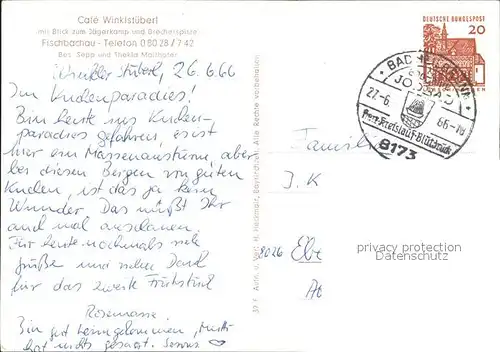 Café Winklstüberl
mit Blick zum Jägerkamp und Brecherspitze
Fischbachau - Telefon 0 80 28 / 7 42
Bes. Sepp und Thekla Mairhofer
Winkler Stüberl, 26.6.66
Im Kuchenparadies!
Bin heute ins Kuchen-
paradies gefahren, es ist
hier ein Massenansturm, aber
bei diesen Bergen von guten
Kuchen, ist das ja kein
Wunder. Das müßt Ihr
auch mal anschauen.
Für heute nochmals viele
Grüße und vielen Dank
für das zweite Frühstück
Rosemarie
Bin gut heimgekommen, Mutti
hat nichts gesagt. Servus
37 F Aufn. u. Verl. H. Heidmair, Alle Rechte vorbehalten
DEUTSCHE BUNDESPOST
20
BAD
JODBAD
27.6. 66-18
Herz-Kreislauf-Blutdruck
8173
Familie
J. K
8026 Ebe
privacy protection
Datenschutz